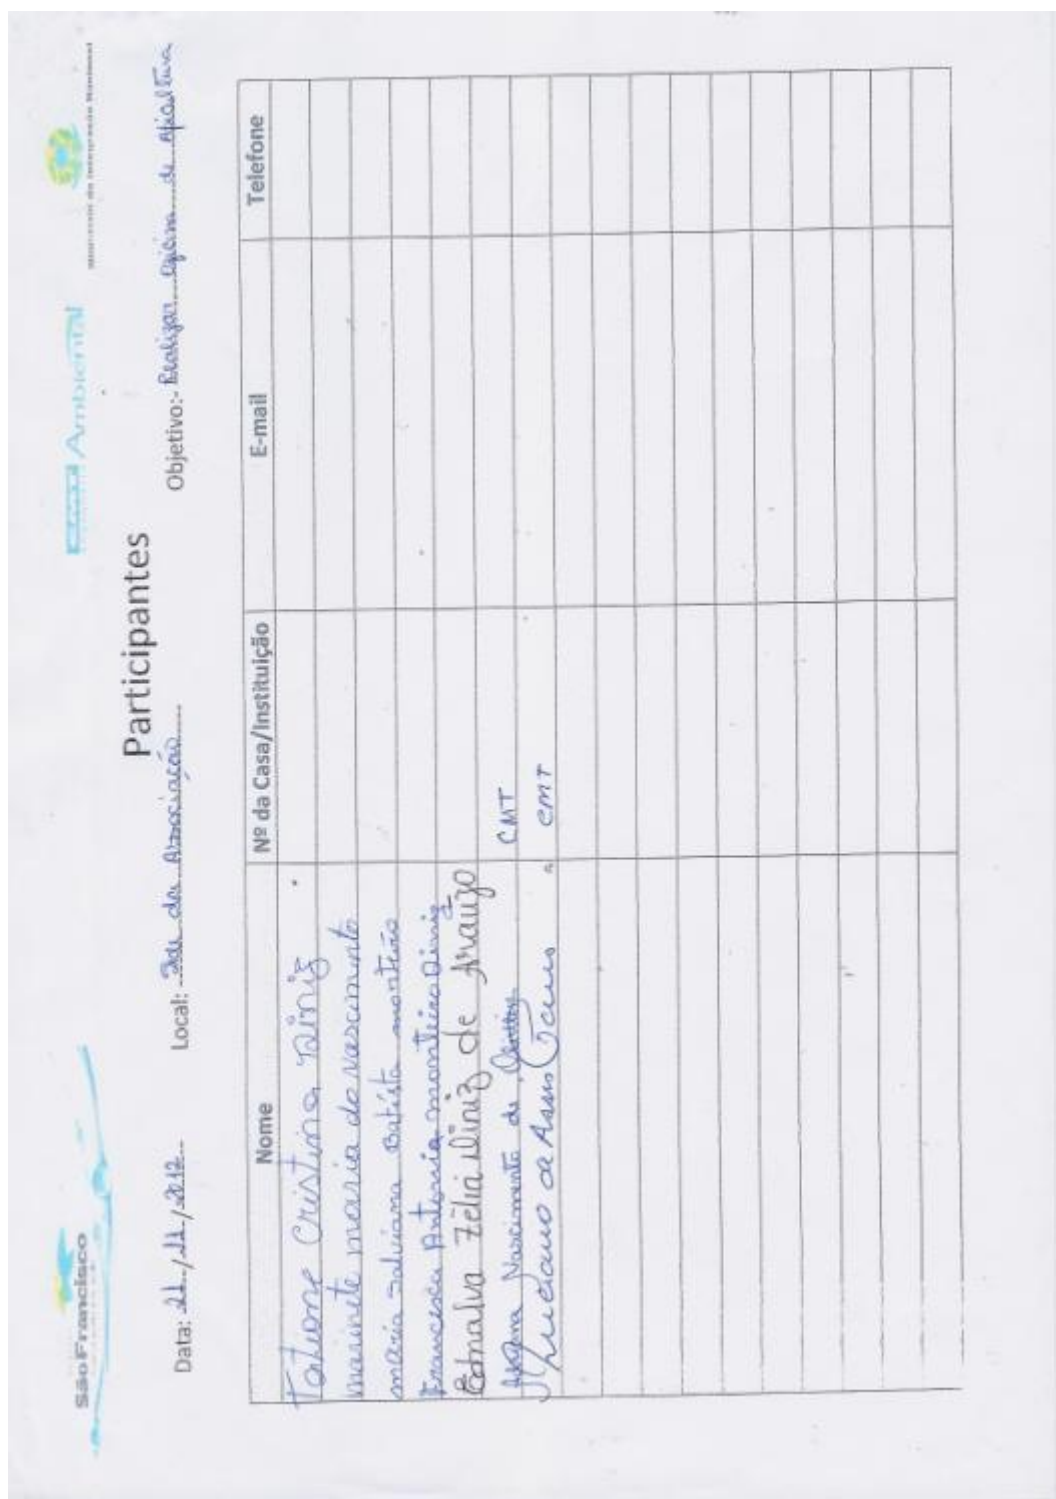 São Francisco
Ambiental
Ministério da Integração Nacional
Participantes
Data: 21/11/2012 Local: Sede da Associação Objetivo:- Realizar Oficina de Apicultura
Nome Nº da Casa/Instituição E-mail Telefone
Tatiane Cristina Diniz
marinete maria do nascimento
maria salviana Batista monteiro
Francisca Antonia monteiro Diniz
Ednalva Zélia Diniz de Araujo
Nascimento de CMT
Luciano de Assis CMT